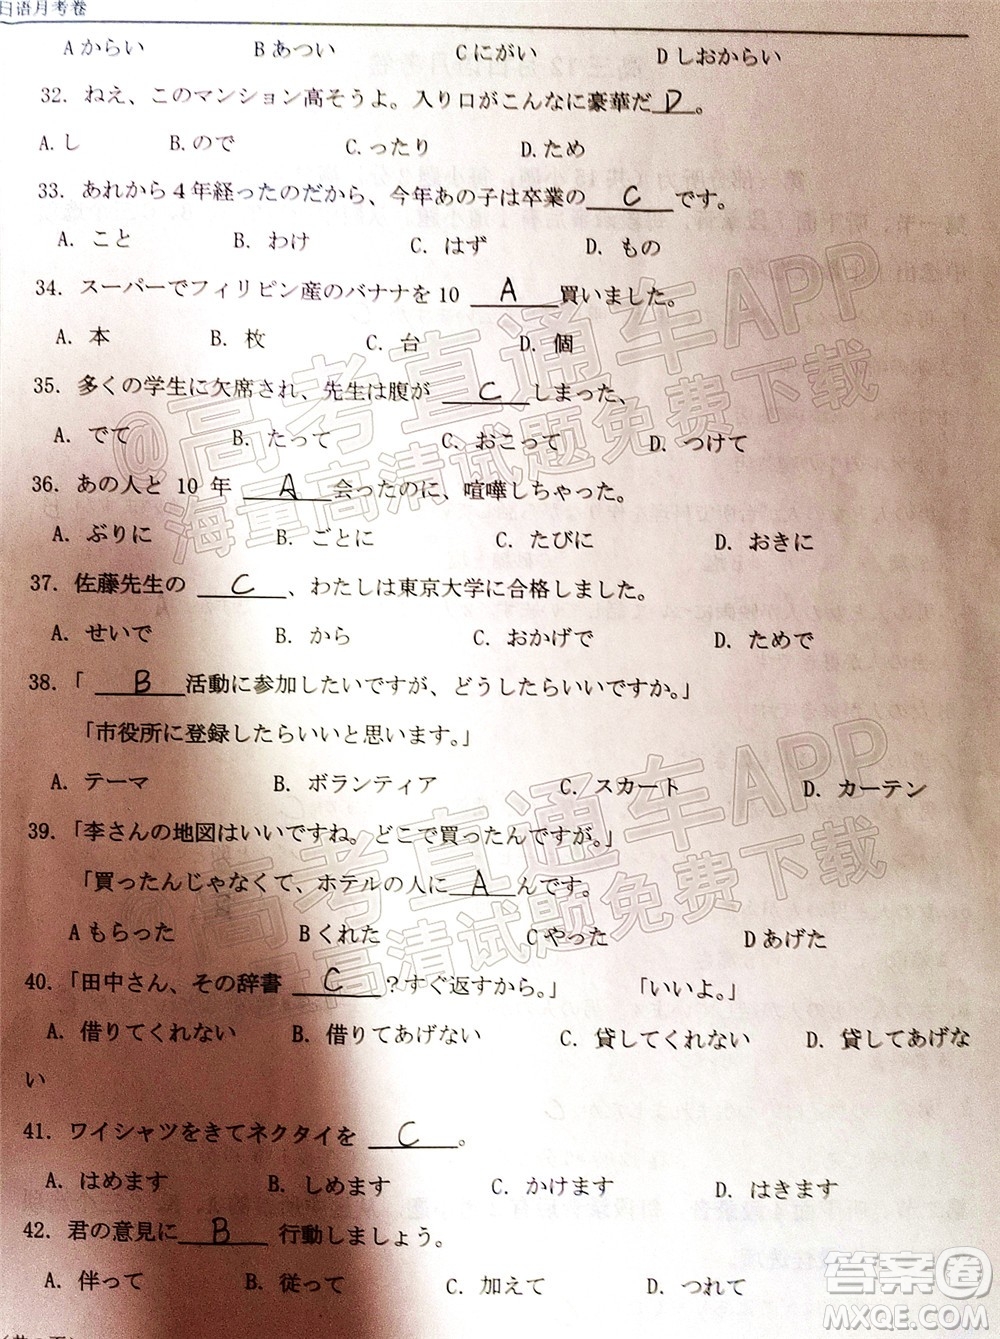 日语月考卷
Aからい Bあつい Cにがい Dしおからい
32. ねえ、このマンション高そうよ。入り口がこんなに豪華だ D 。
A.し B.ので C.ったり D.ため
33. あれから4年経ったのだから、今年あの子は卒業の C です。
A. こと B. わけ C. はず D. もの
34. スーパーでフィリピン産のバナナを10 A 買いました。
A. 本 B. 枚 C. 台 D. 個
35. 多くの学生に欠席され、先生は腹が C しまった、
A. でて B. たって C. おこって D. つけて
36. あの人と 10 年 A 会ったのに、喧嘩しちゃった。
A. ぶりに B. ごとに C. たびに D. おきに
37. 佐藤先生の C 、わたしは東京大学に合格しました。
A. せいで B. から C. おかげで D. ためで
38.「 B 活動に参加したいですが、どうしたらいいですか。」
「市役所に登録したらいいと思います。」
A. テーマ B. ボランティア C. スカート D. カーテン
39.「李さんの地図はいいですね。どこで買ったんですが。」
「買ったんじゃなくて、ホテルの人に A んです。」
Aもらった Bくれた Cやった Dあげた
40.「田中さん、その辞書 C ?すぐ返すから。」 「いいよ。」
A. 借りてくれない B. 借りてあげない C. 貸してくれない D. 貸してあげな
い
41. ワイシャツをきてネクタイを C 。
A. はめます B. しめます C. かけます D. はきます
42. 君の意見に B 行動しましょう。
A. 伴って B. 従って C. 加えて D. つれて
@高考直通车APP
海量高清试题免费下载
@高考直通车APP
海量高清试题免费下载
答案圈
MXQE.COM